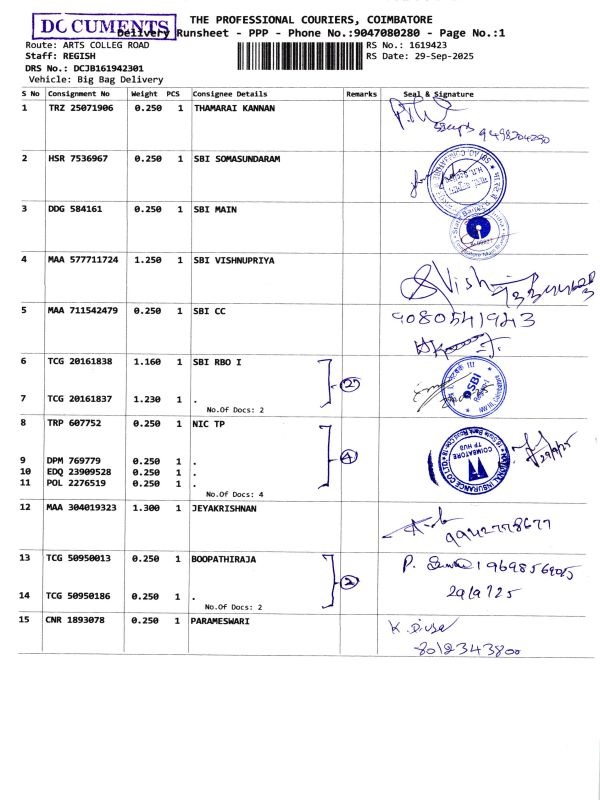 DOCUMENTS
THE PROFESSIONAL COURIERS, COIMBATORE
Delivery Runsheet - PPP - Phone No.:9047080280 - Page No.:1
Route: ARTS COLLEG ROAD RS No.: 1619423
Staff: REGISH RS Date: 29-Sep-2025
DRS No.: DCJB161942301
Vehicle: Big Bag Delivery
S No Consignment No Weight PCS Consignee Details Remarks Seal & Signature
1 TRZ 25071906 0.250 1 THAMARAI KANNAN
2 HSR 7536967 0.250 1 SBI SOMASUNDARAM
3 DDG 584161 0.250 1 SBI MAIN
4 MAA 577711724 1.250 1 SBI VISHNUPRIYA
5 MAA 711542479 0.250 1 SBI CC
9080541943
6 TCG 20161838 1.160 1 SBI RBO I
SBI
2
7 TCG 20161837 1.230 1 .
No.Of Docs: 2
8 TRP 607752 0.250 1 NIC TP
COIMBATORE
TP HUB
29/9/25
4
9 DPM 769779 0.250 1 .
10 EDQ 23909528 0.250 1 .
11 POL 2276519 0.250 1 .
No.Of Docs: 4
12 MAA 304019323 1.300 1 JEYAKRISHNAN
9942778677
13 TCG 50950013 0.250 1 BOOPATHIRAJA
2
29/9/25
14 TCG 50950186 0.250 1 .
No.Of Docs: 2
15 CNR 1893078 0.250 1 PARAMESWARI
8012343800